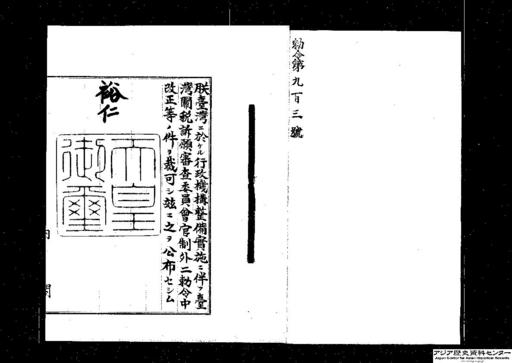 勅令第九百三號
朕臺灣ニ於ケル行政機構整備實施ニ伴フ臺
灣關税訴願審査委員會官制外二勅令中
改正等ノ件ヲ裁可シ茲ニ之ヲ公布セシム
裕仁
天皇
御璽
内閣
アジア歴史資料センター
Japan Center for Asian Historical Records